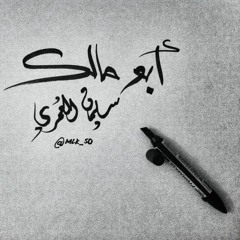 أبو مالك
سليمان العمري
@MLK_SO